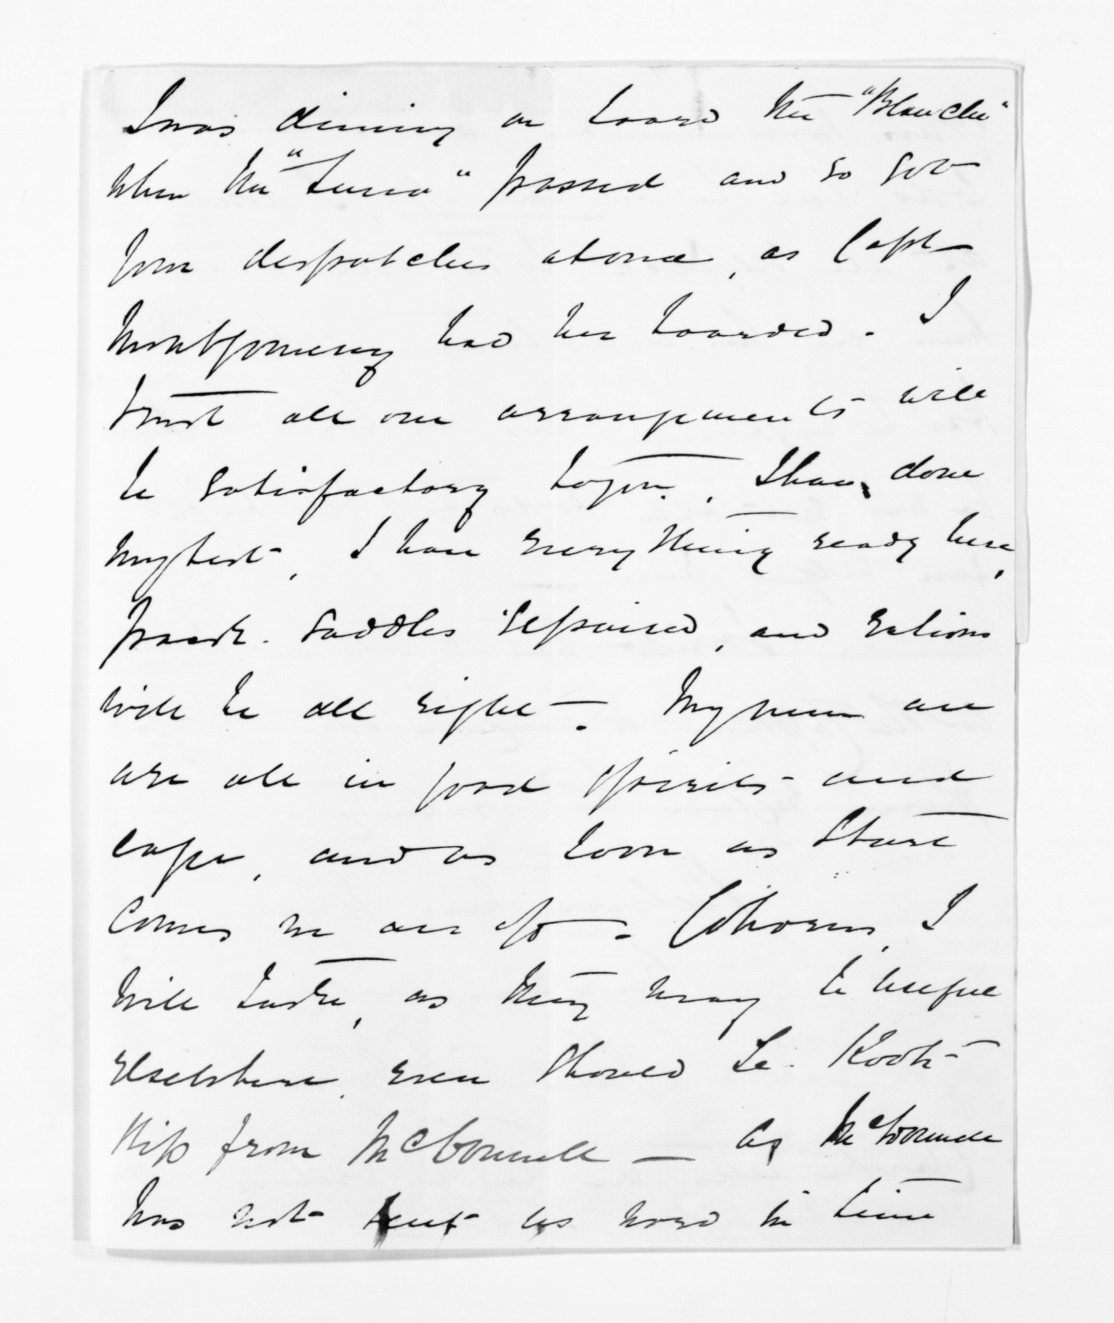 I was dining on board the "Blanche"
when the "Lucca" passed and so got
your despatches at once, as Capt
Montgomery had her boarded. I
trust all our arrangements will
be satisfactory to you. I have done
my best, I have everything ready here,
pack saddles repaired, and rations
will be all right. My men are
are all in good spirits and
eager, and as soon as Sturt
comes we are off. Cohorns, I
will take, as they may be useful
elsewhere, even should Te Kooti
slip from McDonnell — As McDonnell
has not sent us word in time